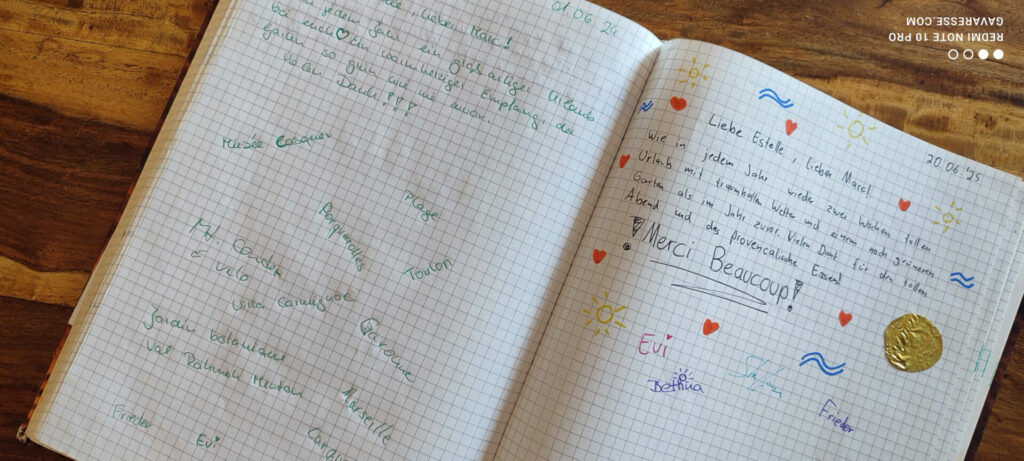 01.06.24
lieber Marc!
jedem Jahr ein großartiger Urlaub
bei euch ♡ Ein warmherziger Empfang, der
Garten so grün wie nie zuvor.
Vielen Dank!!!
Musée Cosquer
Plage
Porquerolles
Toulon
Mt. Coudon
vélo
Villa Carmignac
Garonne
Jardin botanique
Val Rahmeh Menton
Marseille
Frieder
Evi
20.06.'25
Liebe Estelle, lieber Marc!
Wie in jedem Jahr wieder zwei Wochen tollen
Urlaub mit traumhaften Wetter und einem noch grüneren
Garten als im Jahr zuvor. Vielen Dank für den tollen
Abend und das provencalische Essen!
!Merci Beaucoup!
Evi
Stefan
Bettina
Frieder
REDMI NOTE 10 PRO
GAVARESSE.COM